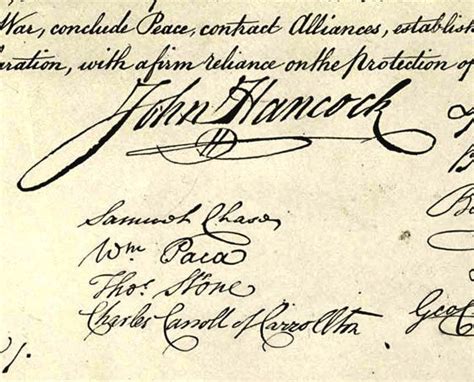 War, conclude Peace, contract Alliances, establish
aration, with a firm reliance on the Protection of
John Hancock
Samuel Chase
Wm Paca
Thos. Stone
Charles Carroll of Carrollton
Geo